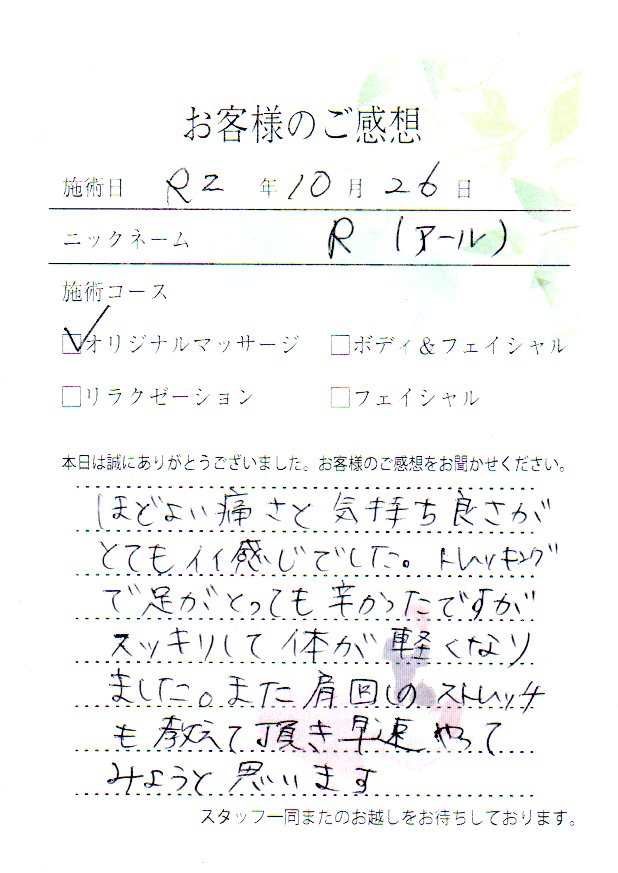 お客様のご感想
施術日 R2 年 10 月 26 日
ニックネーム R (アール)
施術コース
☑オリジナルマッサージ □ボディ&フェイシャル
□リラクゼーション □フェイシャル
本日は誠にありがとうございました。お客様のご感想をお聞かせください。
ほどよい痛さと気持ち良さが
とてもイイ感じでした。トレッキング
で足がとっても辛かったですが
スッキリして体が軽くなり
ました。また肩回しのストレッチ
も教えて頂き早速やって
みようと思います
スタッフ一同またのお越しをお待ちしております。